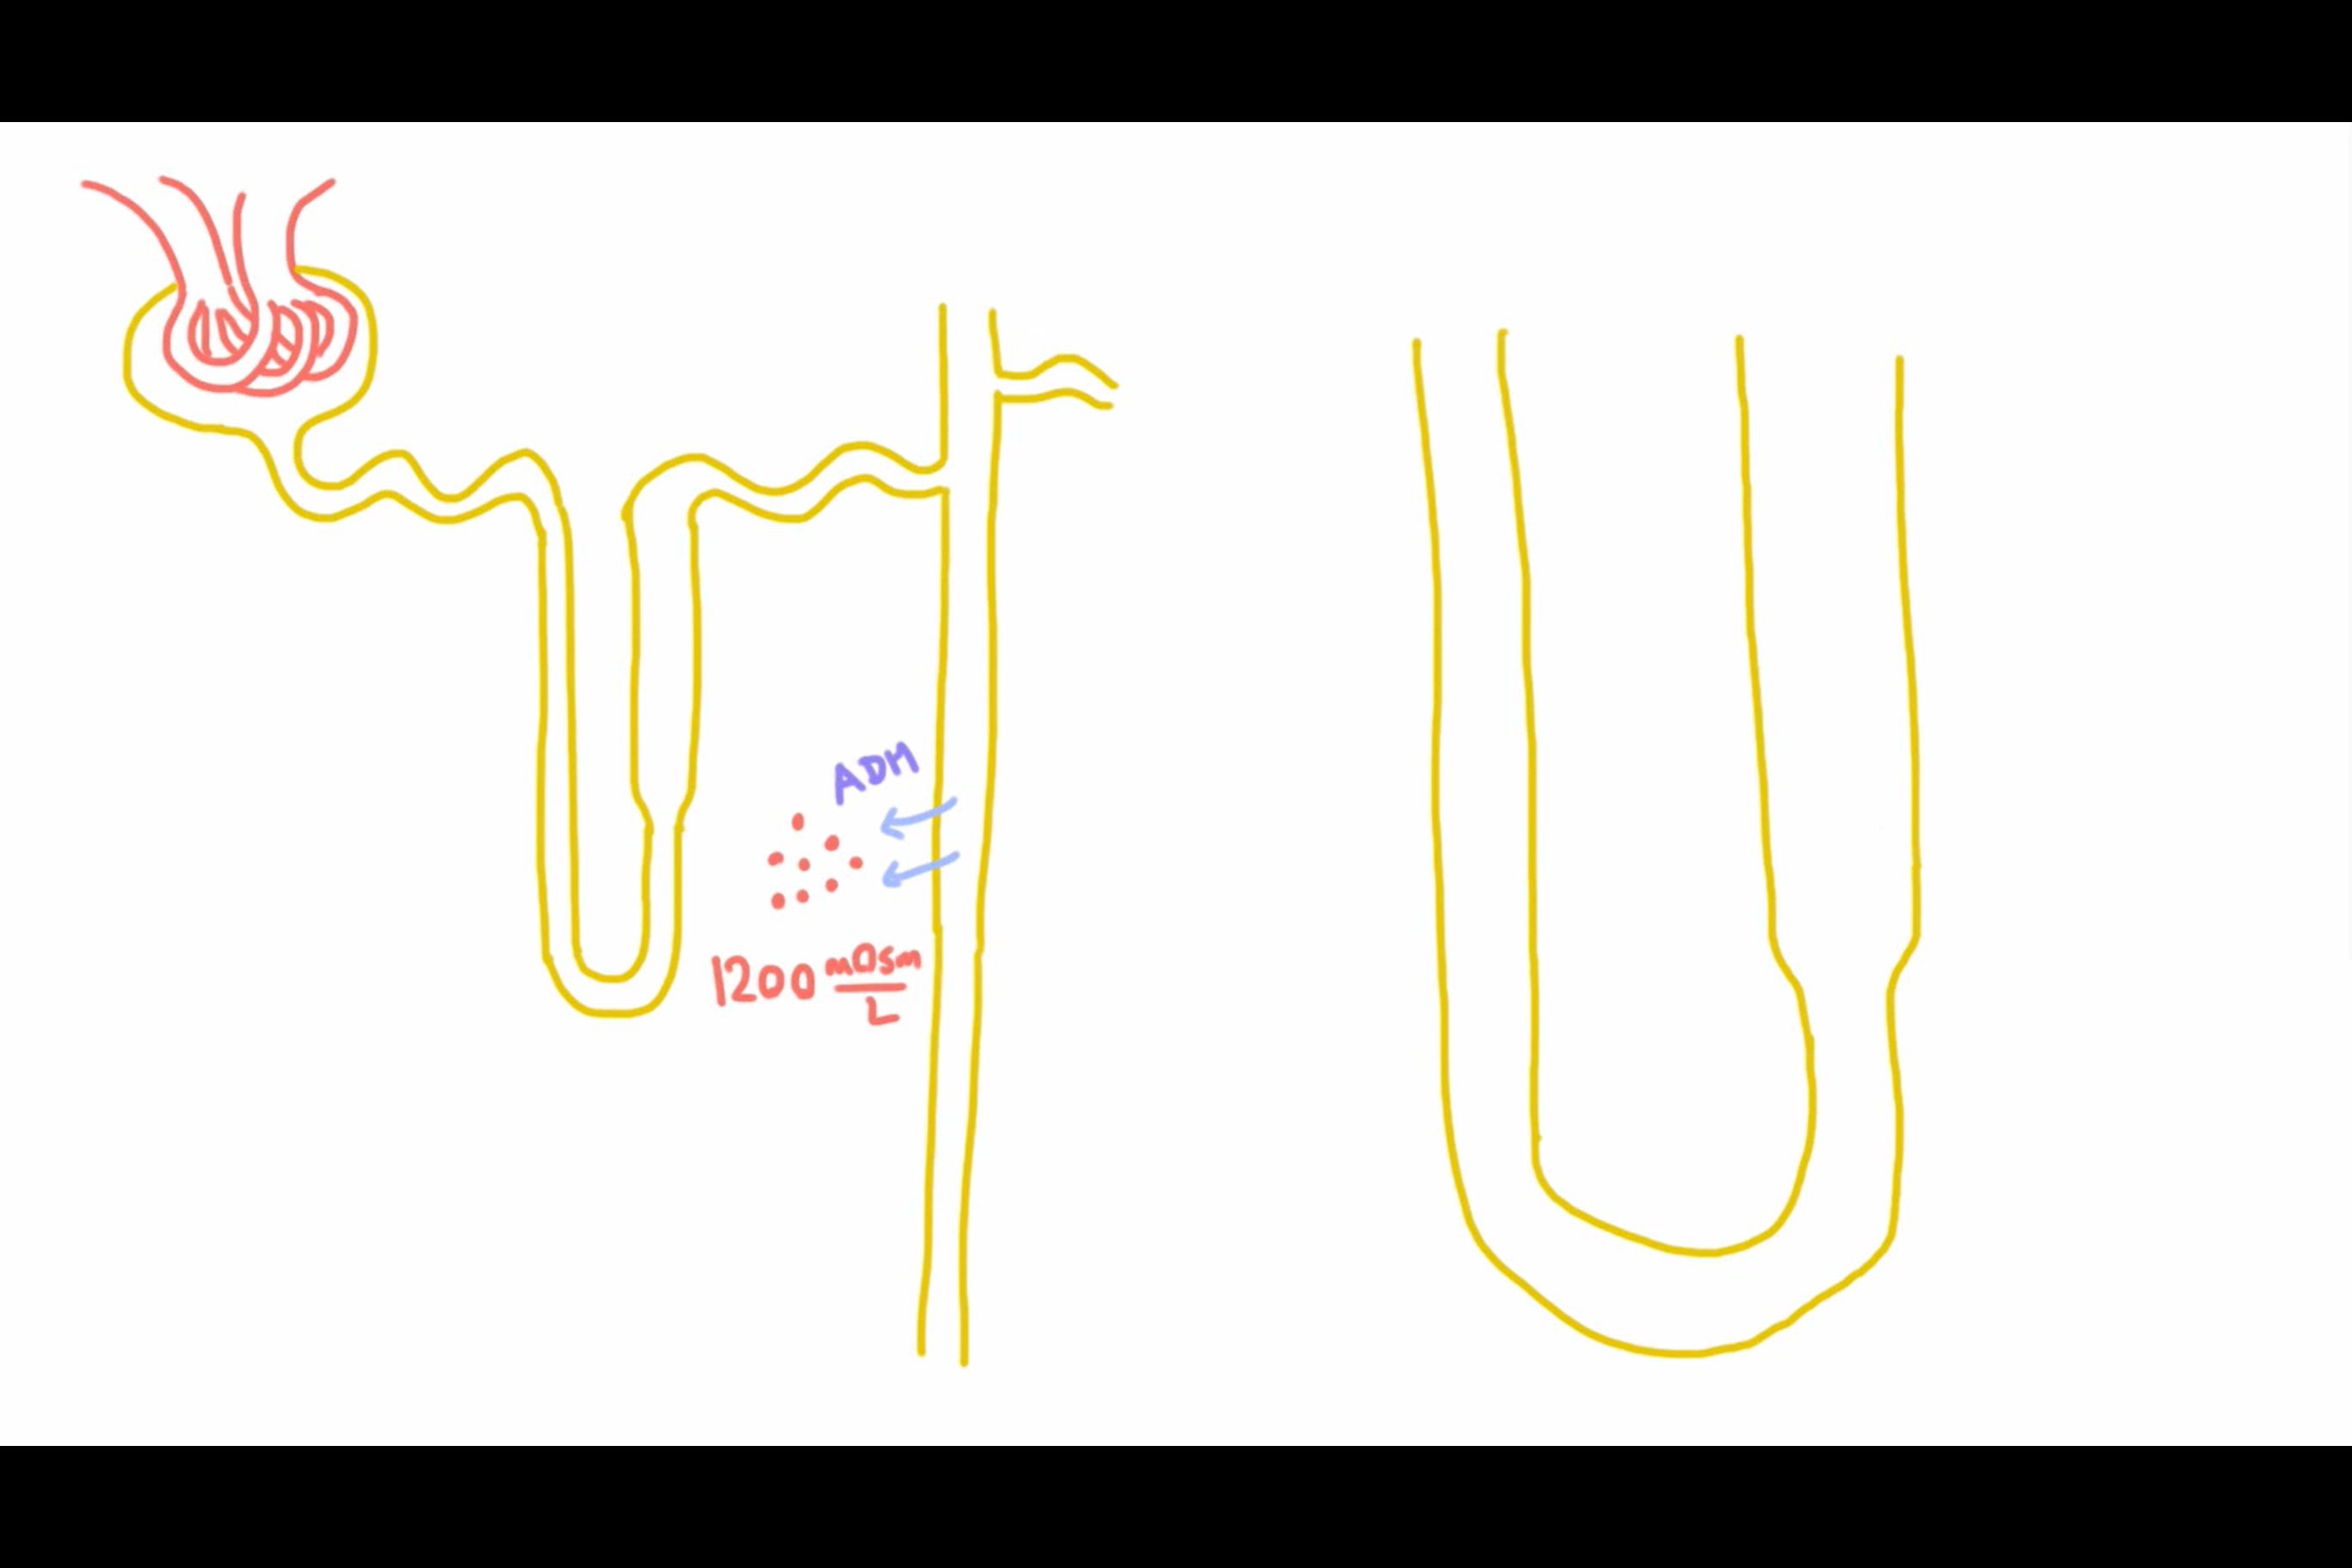 ADH
1200 mOsm
L